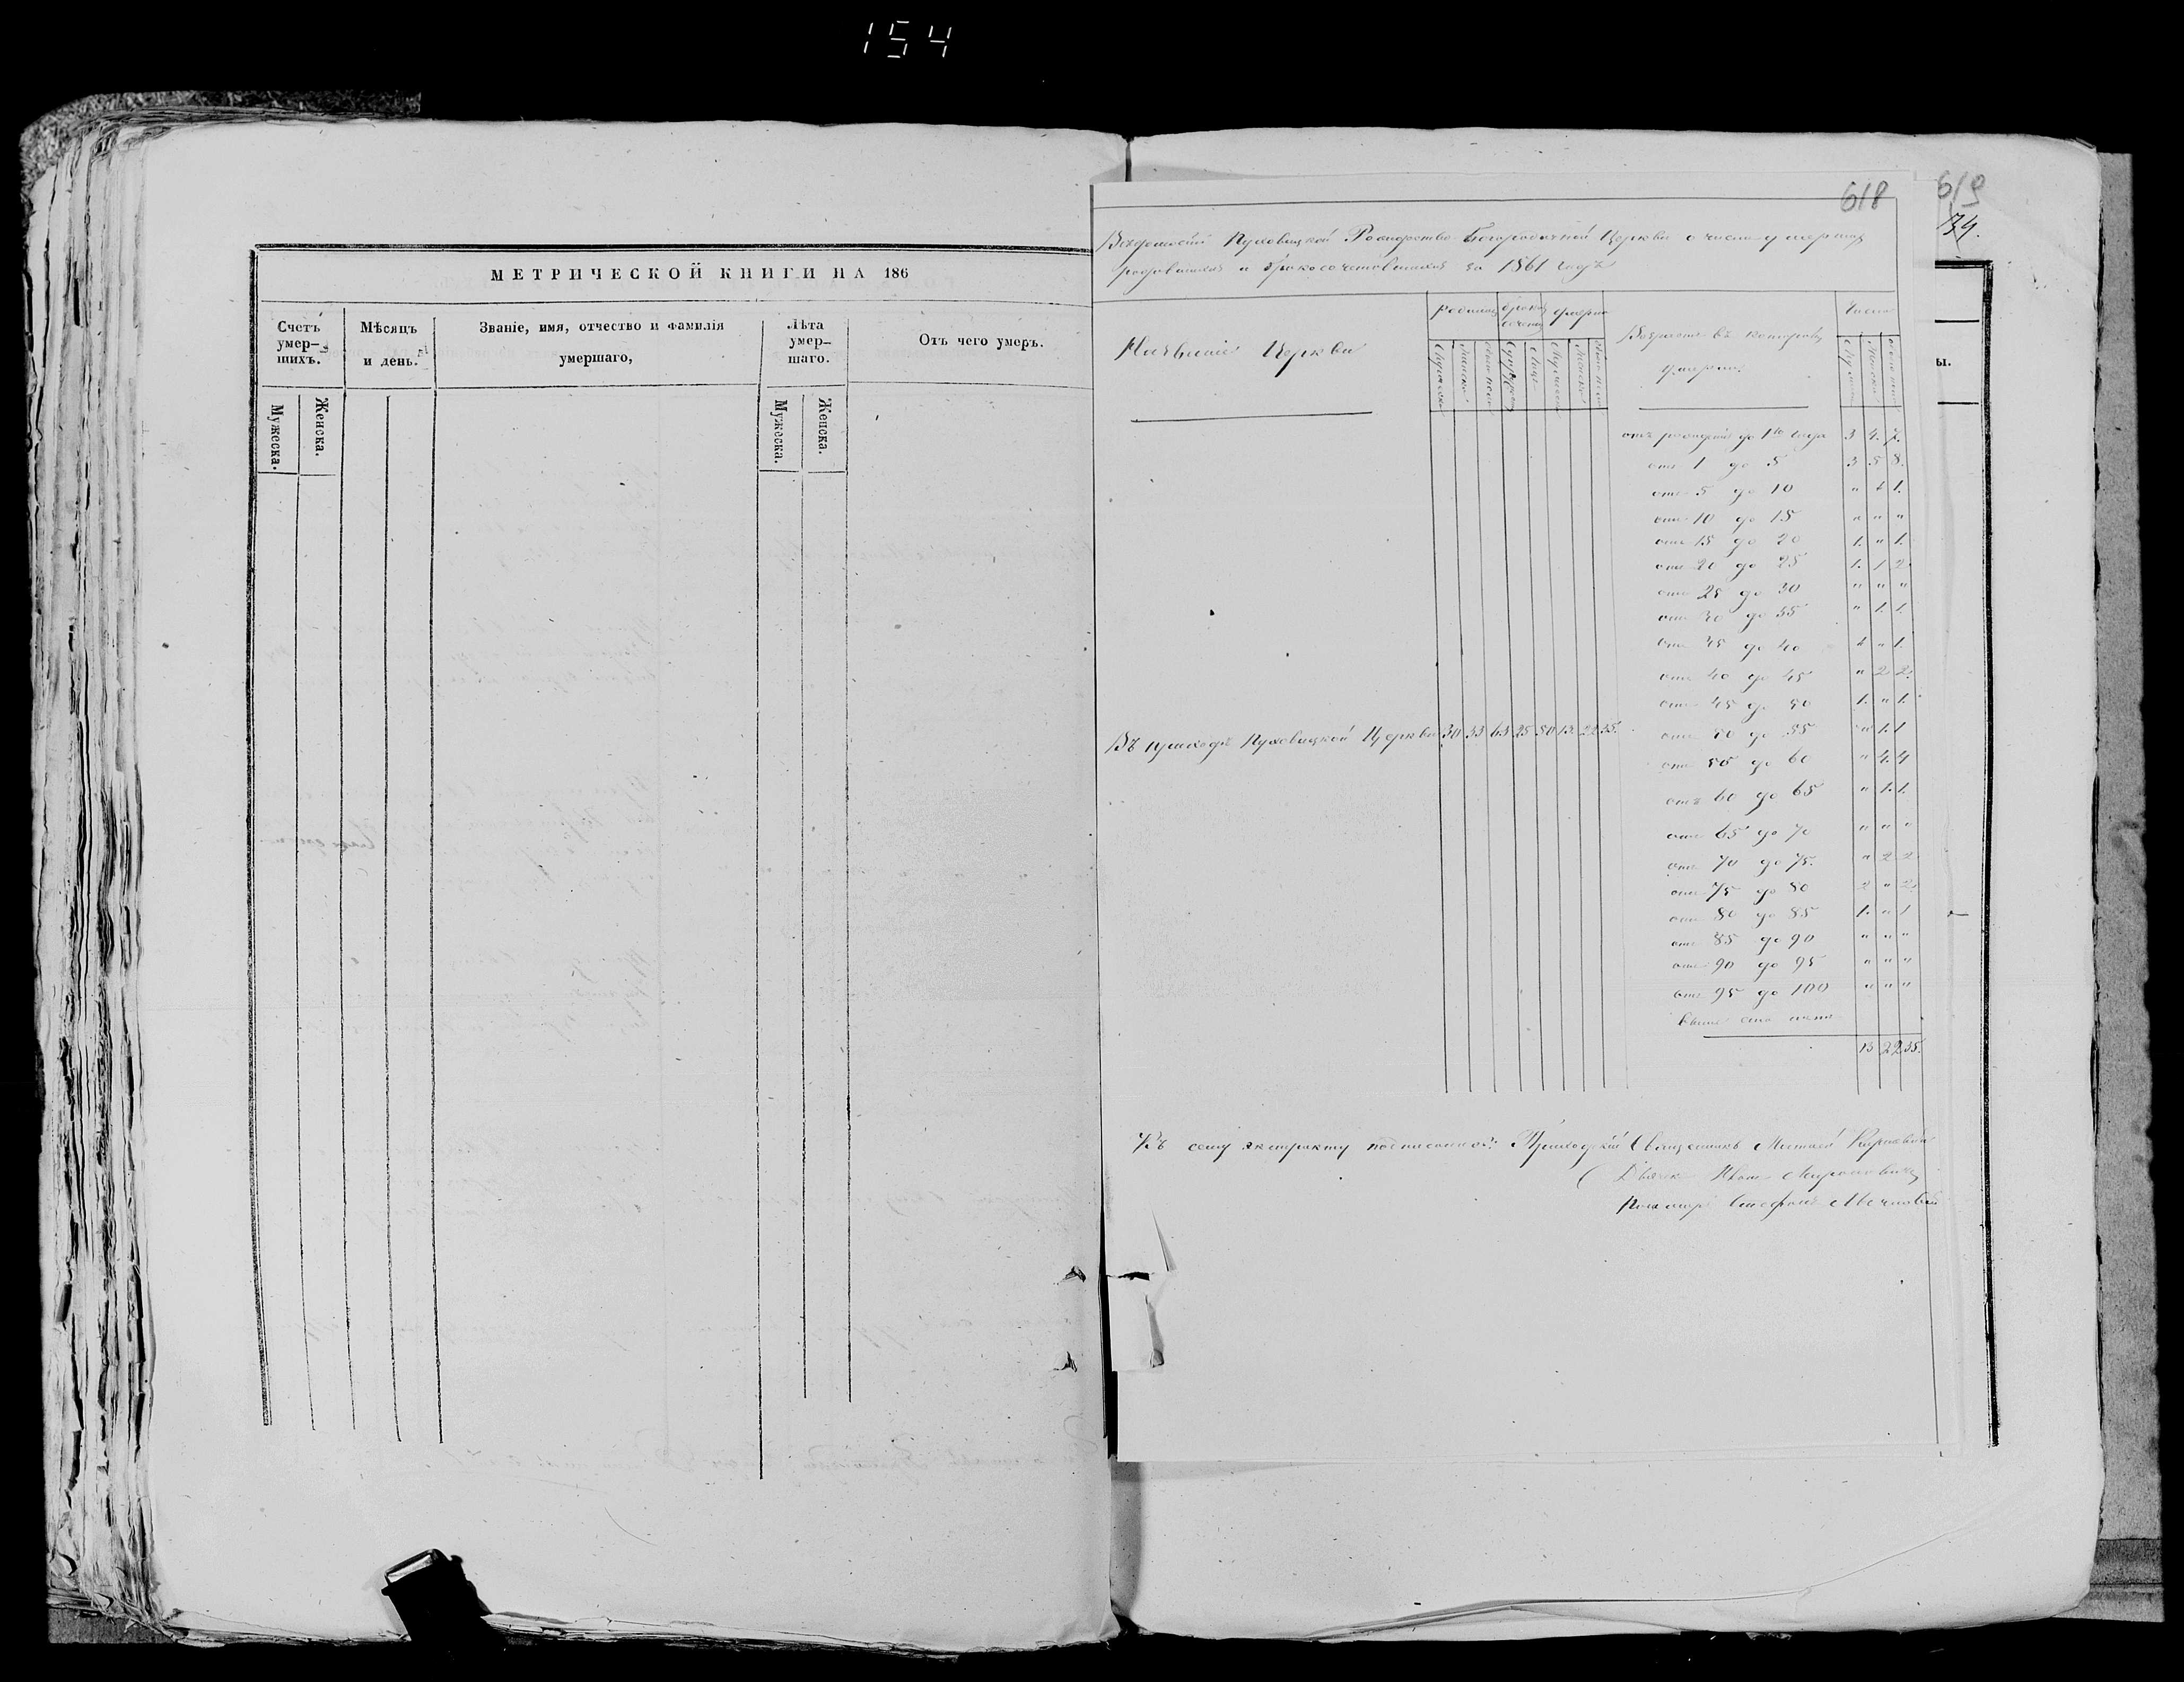 154
МЕТРИЧЕСКОЙ КНИГИ НА 186
Счетъ умер-шихъ.
Мѣсяцъ и день.
Званіе, имя, отчество и фамилія умершаго,
Лѣта умер-шаго.
Отъ чего умеръ.
Мужеска.
Женска.
Мужеска.
Женска.
618
619
34.
ы.
Пуховицкой Рождество Богородичной Церкви о числѣ умершихъ
родившихся и бракосочетавшихся за 1861 годъ
Названіе Церкви
Возрастъ въ которомъ
умерли
Число
отъ рожденія до 1го года 3 4. 7.
отъ 1 до 5 3 5 8.
отъ 5 до 10 " 1 1.
отъ 10 до 15 " " "
отъ 15 до 20 1. " 1.
отъ 20 до 25 1. 1 2.
отъ 25 до 30 " " "
отъ 30 до 35 " 1. 1.
отъ 35 до 40 1 " 1.
отъ 40 до 45 " 2 2.
отъ 45 до 50 1. " 1.
Въ приходѣ Пуховицкой Церкви 30 33 63 25 50 13. 22 35.
отъ 50 до 55 " 1. 1
отъ 55 до 60 " 4. 4
отъ 60 до 65 " 1. 1.
отъ 65 до 70 " " "
отъ 70 до 75. " 2 2.
отъ 75 до 80 2 " 2.
отъ 80 до 85 1. " 1
отъ 85 до 90 " " "
отъ 90 до 95 " " "
отъ 95 до 100 " " "
выше ста лѣтъ
13 22 35.
Къ сему экстракту Приходскій Священникъ Матѳей
Дьячекъ Иванъ Мироновичъ
Пономарь Стефанъ